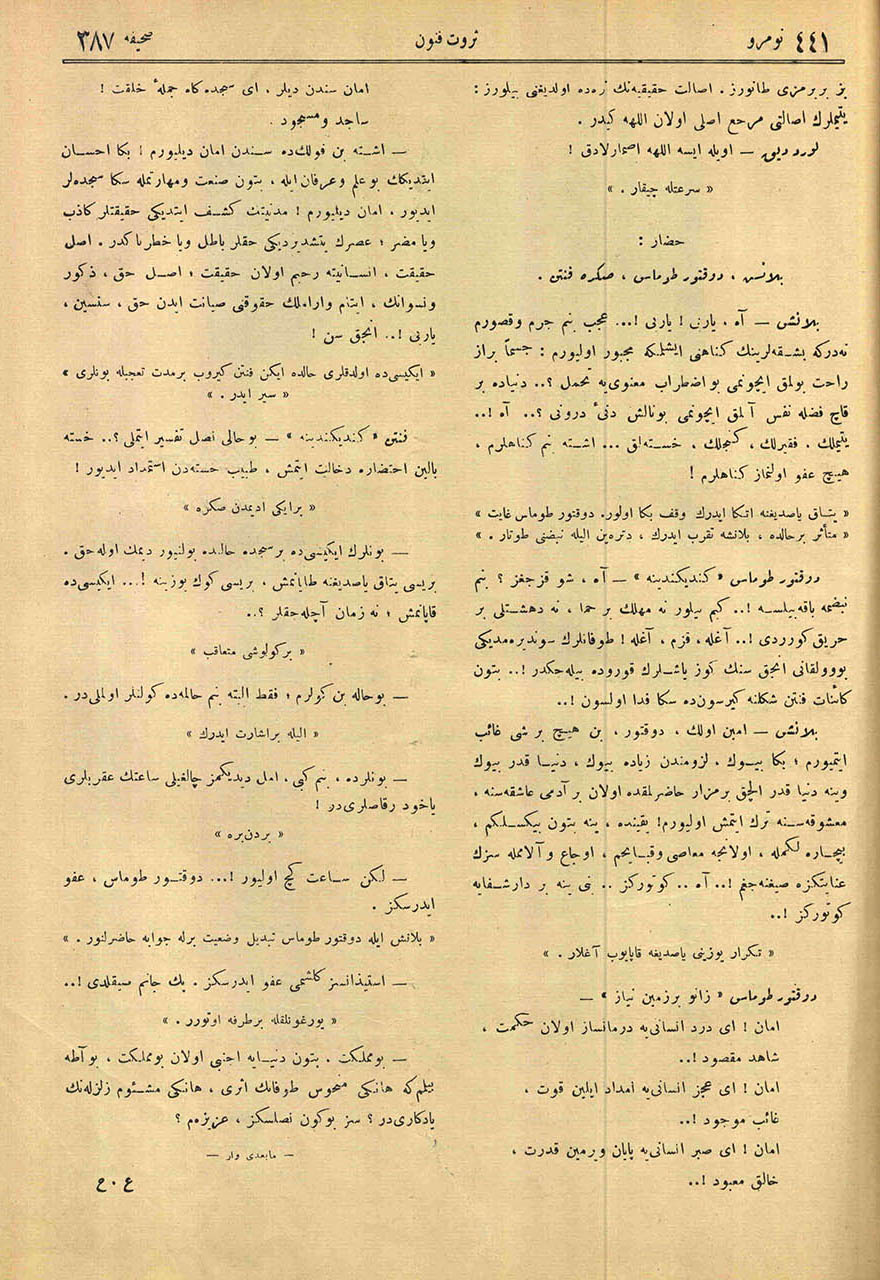 نومرو ٤٤١
ثروت فنون
صحیفه ٣٨٧
بز بربرمزی طانورز . اصالت حقیقیه‌نك نره‌ده اولدیغنی بیلورز :
یتیملرك اصالتی مرجع اصلی اولان اللهه کیدر .
لورد دیق — اویله ایسه اللهه اصمارلادق !
« سرعتله چیقار . »
حضار :
بلانش ، دوقتور طوماس ، صکره فنتن .
بلانش — آه ، یاربی ! یاربی !... عجب بنم جرم وقصورم
نه‌درکه بشقه‌لرینك کناهنی ایشلمکه مجبور اولیورم : جسماً براز
راحت بولمق ایچونمی بو اضطراب معنوی‌یه تحمل ؟.. دنیاده بر
قاچ فضله نفس آلمق ایچونمی بونالش دنیٔ درونی ؟.. آه !..
یتیملك . فقیرلك ، کنجلك ، خسته‌لق ... اشته بنم کناهلرم ،
هیچ عفو اولنماز کناهلرم !
« یتاق یاصدیغنه اتکا ایدرك وقف بکا اولور. دوقتور طوماس غایت »
« متأثر برحالده ، بلانشه تقرب ایدرك ، دتره‌ین الیله نبضنی طوتار . »
دوقتور طوماس « کندیکندینه » — آه ، شو قزجغز ؟ بنم
نبضمه باقه‌بیلسه !.. کیم بیلور نه مهلك بر حما ، نه دهشتلی بر
حریق کوردی !.. آغله ، قزم ، آغله ! طوفانلرك سوندیره‌مدیکی
بووولقانی انجق سنك کوز یاشلرك قوروده بیله‌جکدر !.. بتون
کائنات فنتن شکلنه کیرسون‌ده سکا فدا اولسون !..
بلانش — امین اولك ، دوقتور ، بن هیچ بر شی غائب
ایتمیورم ؛ بکا بیوك ، لزومندن زیاده بیوك ، دنیا قدر بیوك
وینه دنیا قدر آلچق برمزار حاضرلمقده اولان بر آدمی عاشقه‌سنه ،
معشوقه‌سنه ترك ایتمش اولیورم! یقینده ، ینه بتون بیکسلکم ،
بیچاره لکمله ، اولانجه معاصی وقبایحم ، اوجاع وآلامله سزك
عنایتکزه صیغنه‌جغم !.. آه .. کوتورکز .. بنی ینه بر دارشفایه
کوتورکز !..
« تکرار یوزینی یاصدیغه قاپایوب آغلار . »
دوقتور طوماس « زانو برزمین نیاز » —
امان ! ای درد انسانی‌یه درمانساز اولان حکمت ،
شاهد مقصود !..
امان ! ای عجز انسانی‌یه امداد ایلین قوت ،
غائب موجود !..
امان ! ای صبر انسانی‌یه پایان ویرمین قدرت ،
خالق معبود !..
امان سندن دیلر ، ای سجده‌کاه جملهٔ خلقت !
ساجد ومسجود .
— اشته بن قولك‌ده سندن امان دیلیورم ! بکا احسان
ایتدیکك بوعلم وعرفان‌ایله ، بتون صنعت ومهارتمله سکا سجده‌لر
ایدیور ، امان دیلیورم ! مدنیتك کشف ایتدیکی حقیقتلر کاذب
ویا مضر ؛ عصرك یتشدیردیکی حقلر باطل ویا خطرناکدر . اصل
حقیقت ، انسانیته رحیم اولان حقیقت ؛ اصل حق ، ذکور
ونسوانك ، ایتام واراملك حقوقنی صیانت ایدن حق ، سنسین ،
یاربی !.. انجق سن !
« ایکیسی‌ده اولدقلری حالده ایکن فنتن کیروب برمدت تعجبله بونلری »
« سیر ایدر . »
فنتن « کندیکندینه » — بوحالی نصل تفسیر ایتملی ؟.. خسته
بالین احتضاره دخالت ایتمش ، طبیب خسته‌دن استمداد ایدیور !
« برایکی ادیمدن صکره »
— بونلرك ایکیسی‌ده برسجده حالنده بولنیور دیمك اوله‌جق .
بریسی یتاق یاصدیغنه طایانمش ، بریسی کوك یوزینه !... ایکیسی‌ده
قاپانمش ؛ نه زمان آچله‌جقلر ؟..
« برکولوشی متعاقب »
— بوحاله بن کولرم ؛ فقط البته بنم حالمه‌ده کولنلر اولملی‌در .
« الیله براشارت ایدرك »
— بونلرده ، بنم کبی ، امل دیدیکمز چالغیلی ساعتك عقربلری
یاخود رقاصلری‌در !
« بردن‌بره »
— لکن ساعت کچ اولیور !... دوقتور طوماس ، عفو
ایدرسکز .
« بلانش ایله دوقتور طوماس تبدیل وضعیت برله جوابه حاضرلنور . »
— استیذانسز کلشمی عفو ایدرسکز . پك جانم صیقلدی !..
« یورغونلقله برطرفه اوتورر . »
— بومملکت . بتون دنیایه اجنبی اولان بومملکت ، بوآطه
بیلم‌که هانکی منحوس طوفانك اثری ، هانکی مشئوم زلزله‌نك
یادکاری‌در ؟ سز بوکون نصلسکز ، عزیزه‌م ؟
— مابعدی وار —
ع . ح